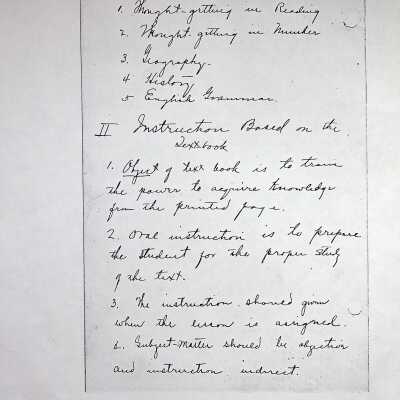 1. Thought-getting in Reading
2. Thought-getting in Number
3. Geography.
4 History
5 English Grammar.
II Instruction Based on the
Textbook
1. Object of text book is to train
the power to acquire knowledge
from the printed page.
2. Oral instruction is to prepare
the student for the proper study
of the text.
3. The instruction should given
when the lesson is assigned.
Subject-Matter should be objective
and instruction indirect.